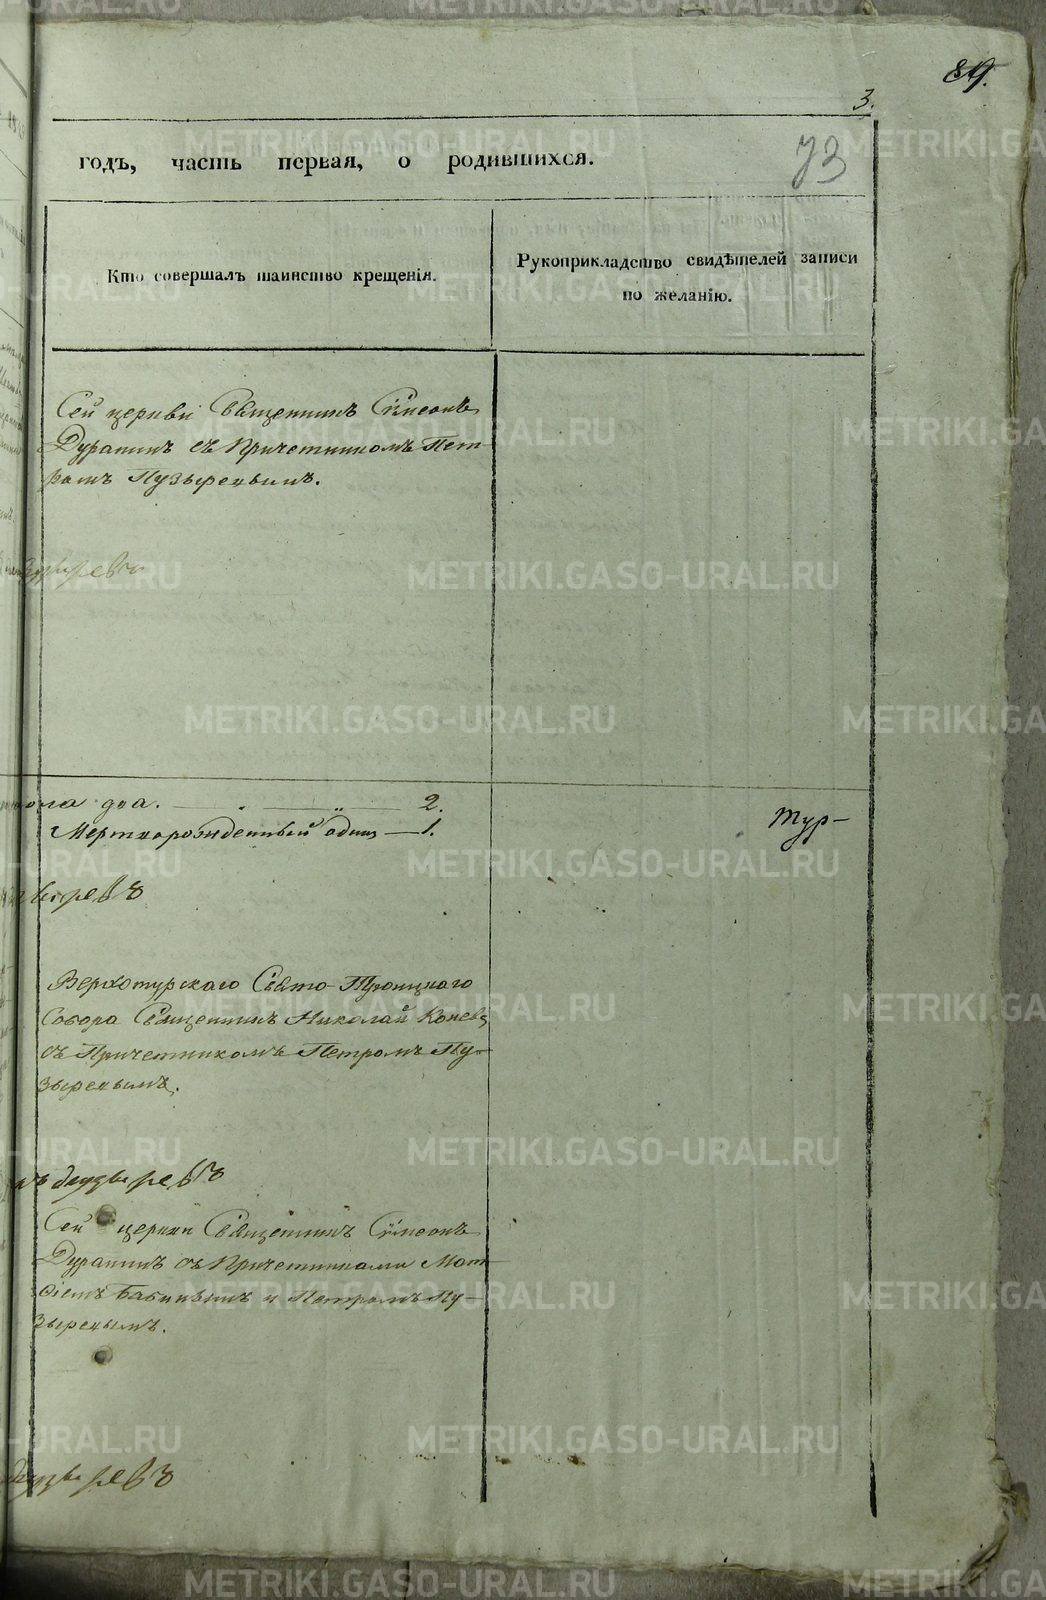 89.
3.
73
годъ, часть первая, о родившихся.
Кто совершалъ таинство крещенія.
Рукоприкладство свидѣтелей записи
по желанію.
Сей церкви Священникъ Сѵмеонъ
Дурапинъ съ Причетникомъ Пет-
ромъ Пузыревымъ.
два. 2.
Мертворожденный один 1.
Тур-
Верхотурскаго Свято-Троицкаго
Собора Священникъ Николай Коневъ
съ Причетникомъ Петромъ Пу-
зыревымъ.
Сей церкви Священникъ Сѵмеонъ
Дурапинъ съ Причетниками Мат-
ѳіемъ Бабинымъ и Петромъ Пу-
зыревымъ.
METRIKI.GASO-URAL.RU